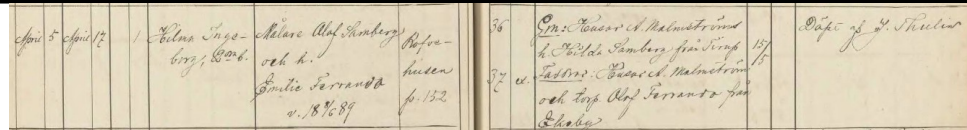 April 5 April 17 1 Hilma Inge-
borg,
Målare Olof Samberg
och h.
Emilie Ferrando
v. 18 89
Rofve-
husen
fo. 132
36
37 a.
Gm: Husar A. Malmströms
h. Hilda Samberg från
Faddrar: Husar A. Malmström
och torp. Olof Ferrando från
Ekeby
15/5
Döpt af J. Thulin